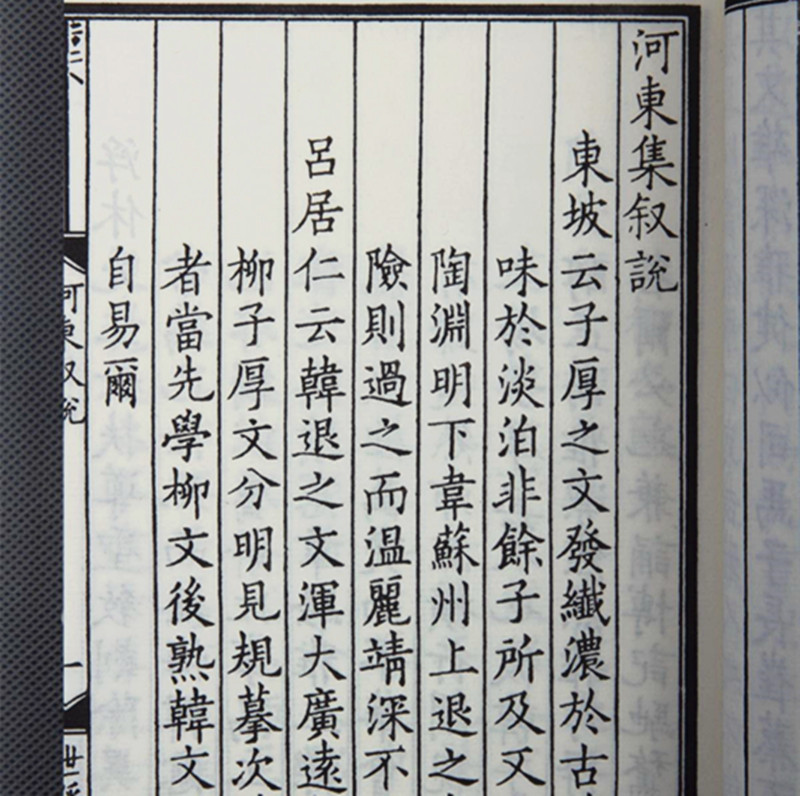 河東集叙說
東坡云子厚之文發纖濃於古
味於淡泊非餘子所及又
陶淵明下韋蘇州上退之
險則過之而温麗靖深不
呂居仁云韓退之文渾大廣遠
柳子厚文分明見規摹次
者當先學柳文後熟韓文
自易爾
河東叙說
一
世